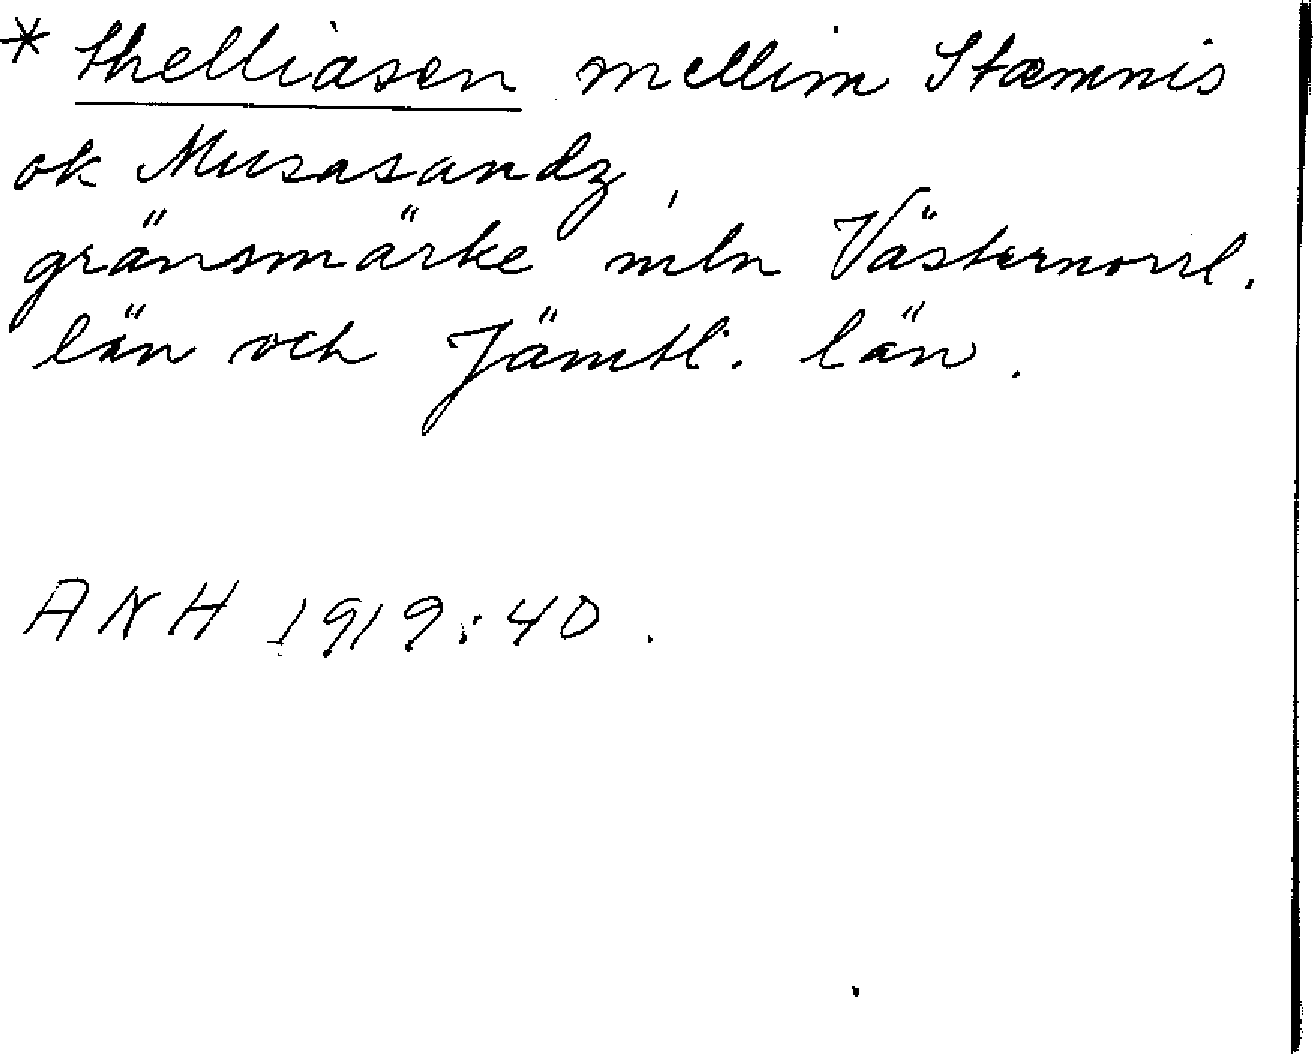 * thelliasen mellim Stæmnis
ok Musasandz,
gränsmärke mln Västernorrl.
län och Jämtl. län.
ANH 1919:40.